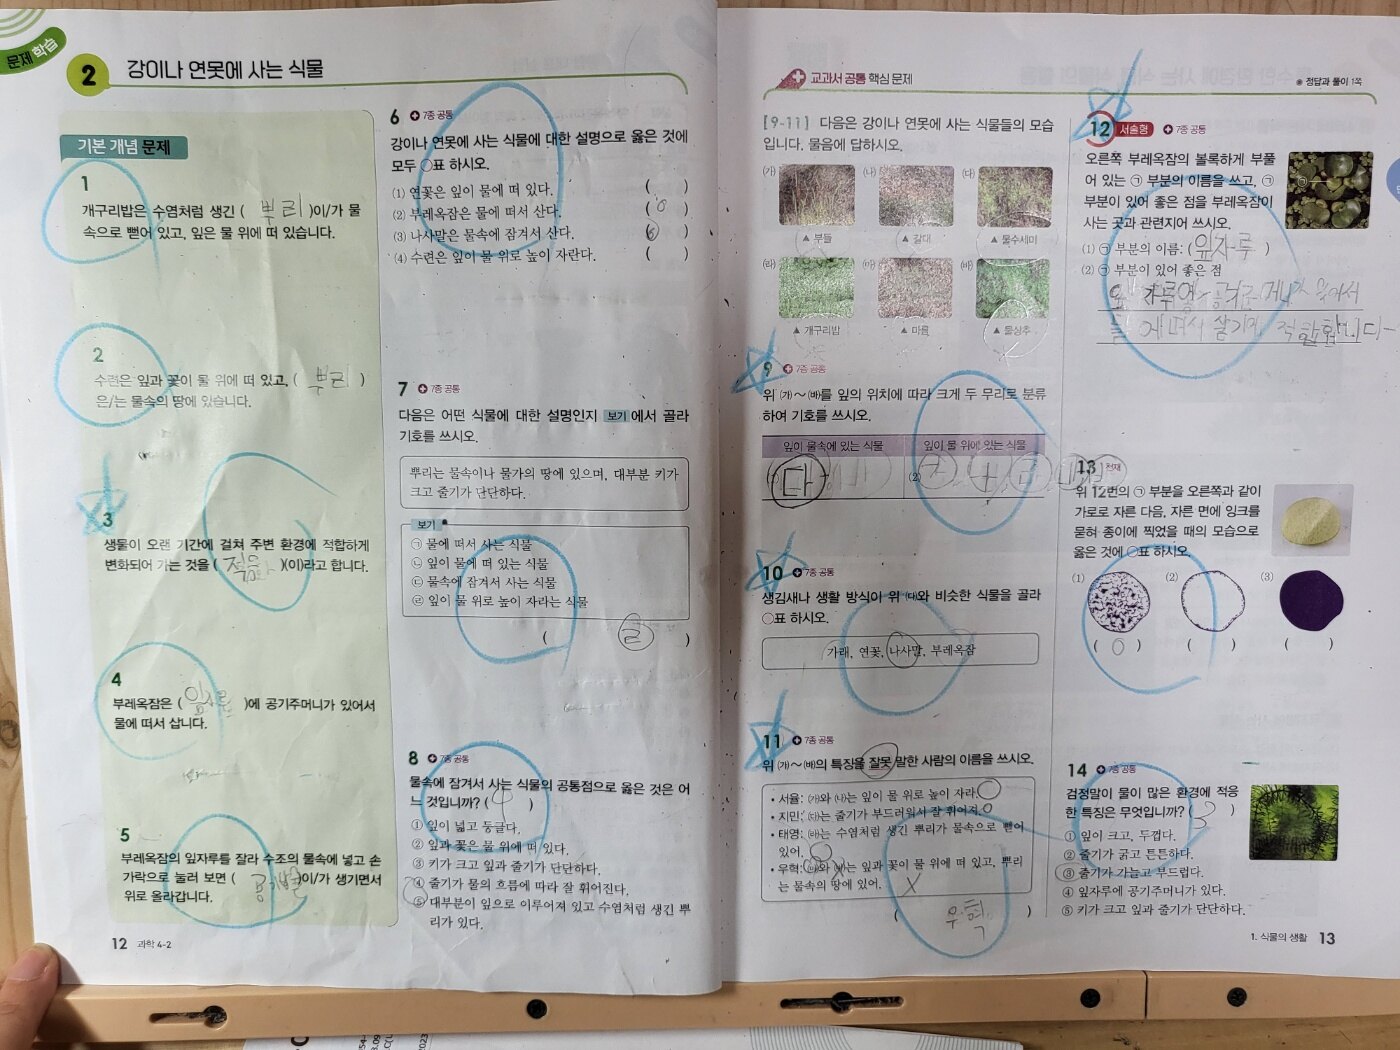 문제 학습
2 강이나 연못에 사는 식물
기본 개념 문제
1
개구리밥은 수염처럼 생긴 ( 뿌리 )이/가 물
속으로 뻗어 있고, 잎은 물 위에 떠 있습니다.
2
수련은 잎과 꽃이 물 위에 떠 있고, ( 뿌리 )
은/는 물속의 땅에 있습니다.
3
생물이 오랜 기간에 걸쳐 주변 환경에 적합하게
변화되어 가는 것을 ( 적응 )(이)라고 합니다.
4
부레옥잠은 ( 잎자루 )에 공기주머니가 있어서
물에 떠서 삽니다.
5
부레옥잠의 잎자루를 잘라 수조의 물속에 넣고 손
가락으로 눌러 보면 ( 공기방울 )이/가 생기면서
위로 올라갑니다.
12 과학 4-2
6 7종 공통
강이나 연못에 사는 식물에 대한 설명으로 옳은 것에
모두 ○표 하시오.
⑴ 연꽃은 잎이 물에 떠 있다. ( )
⑵ 부레옥잠은 물에 떠서 산다. ( ○ )
⑶ 나사말은 물속에 잠겨서 산다. ( ○ )
⑷ 수련은 잎이 물 위로 높이 자란다. ( )
7 7종 공통
다음은 어떤 식물에 대한 설명인지 보기 에서 골라
기호를 쓰시오.
뿌리는 물속이나 물가의 땅에 있으며, 대부분 키가
크고 줄기가 단단하다.
보기
㉠ 물에 떠서 사는 식물
㉡ 잎이 물에 떠 있는 식물
㉢ 물속에 잠겨서 사는 식물
㉣ 잎이 물 위로 높이 자라는 식물
( ㉣ )
8 7종 공통
물속에 잠겨서 사는 식물의 공통점으로 옳은 것은 어
느 것입니까? ( 4 )
① 잎이 넓고 둥글다.
② 잎과 꽃은 물 위에 떠 있다.
③ 키가 크고 잎과 줄기가 단단하다.
④ 줄기가 물의 흐름에 따라 잘 휘어진다.
⑤ 대부분이 잎으로 이루어져 있고 수염처럼 생긴 뿌
리가 있다.
교과서 공통 핵심 문제
정답과 풀이 1쪽
[9-11] 다음은 강이나 연못에 사는 식물들의 모습
입니다. 물음에 답하시오.
㈎ ㈏ ㈐
▲ 부들 ▲ 갈대 ▲ 물수세미
㈑ ㈒ ㈓
▲ 개구리밥 ▲ 마름 ▲ 물상추
9 7종 공통
위 ㈎~㈓를 잎의 위치에 따라 크게 두 무리로 분류
하여 기호를 쓰시오.
잎이 물속에 있는 식물 잎이 물 위에 있는 식물
다 ⑵ 가 나 라 마 바
10 7종 공통
생김새나 생활 방식이 위 ㈐와 비슷한 식물을 골라
○표 하시오.
가래, 연꽃, 나사말, 부레옥잠
11 7종 공통
위 ㈎~㈓의 특징을 잘못 말한 사람의 이름을 쓰시오.
• 서율: ㈎와 ㈏는 잎이 물 위로 높이 자라. ○
• 지민: ㈐는 줄기가 부드러워서 잘 휘어지. ○
• 태영: ㈑는 수염처럼 생긴 뿌리가 물속으로 뻗어
있어. ○
• 우혁: ㈒와 ㈓는 잎과 꽃이 물 위에 떠 있고, 뿌리
는 물속의 땅에 있어. X
( 우혁 )
12 서술형 7종 공통
오른쪽 부레옥잠의 볼록하게 부풀
어 있는 ㉠ 부분의 이름을 쓰고, ㉠
부분이 있어 좋은 점을 부레옥잠이
사는 곳과 관련지어 쓰시오.
㉠
⑴ ㉠ 부분의 이름: ( 잎자루 )
⑵ ㉠ 부분이 있어 좋은 점
잎자루에 공기주머니가 있어서
물에 떠서 살기에 적합합니다
13 천재
위 12번의 ㉠ 부분을 오른쪽과 같이
가로로 자른 다음, 자른 면에 잉크를
묻혀 종이에 찍었을 때의 모습으로
옳은 것에 ○표 하시오.
⑴ ⑵ ⑶
( ○ ) ( ) ( )
14 7종 공통
검정말이 물이 많은 환경에 적응
한 특징은 무엇입니까? ( 3 )
① 잎이 크고, 두껍다.
② 줄기가 굵고 튼튼하다.
③ 줄기가 가늘고 부드럽다.
④ 잎자루에 공기주머니가 있다.
⑤ 키가 크고 잎과 줄기가 단단하다.
1. 식물의 생활 13